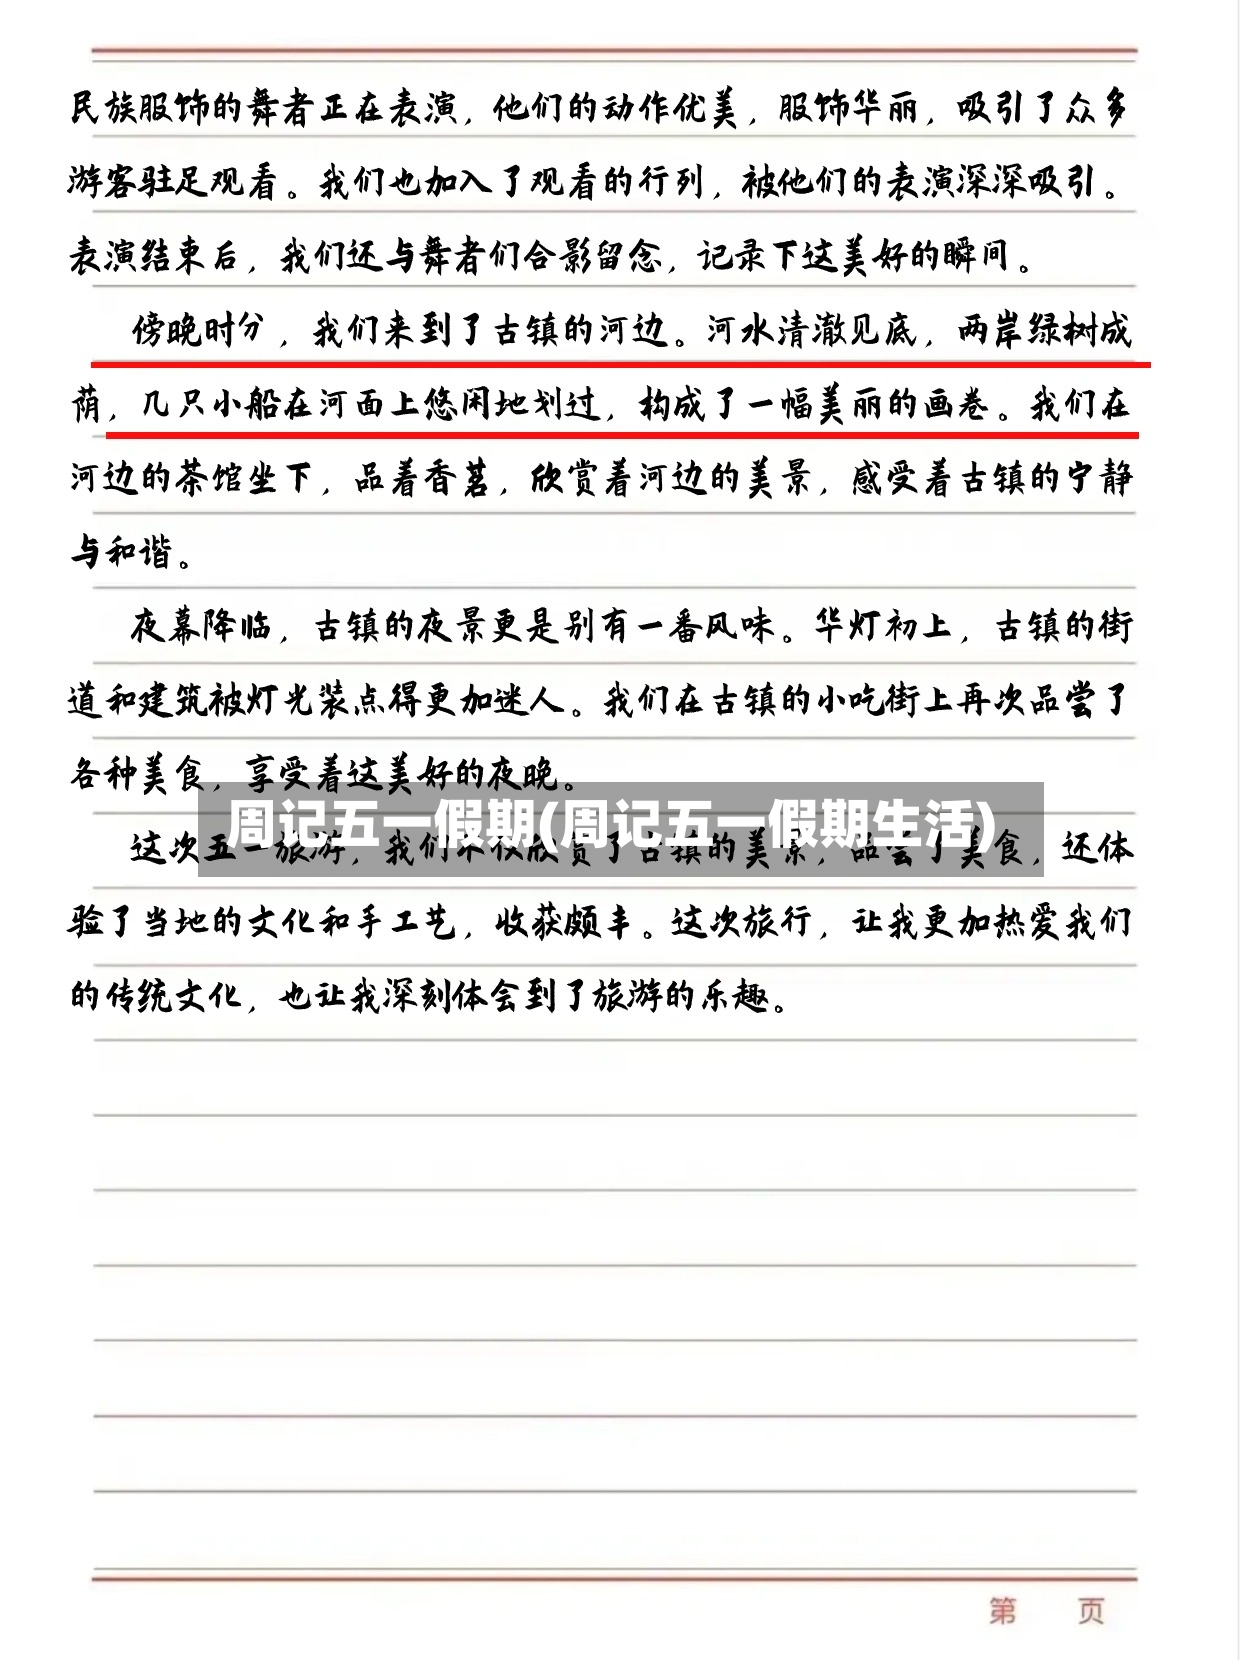 民族服饰的舞者正在表演，他们的动作优美，服饰华丽，吸引了众多
游客驻足观看。我们也加入了观看的行列，被他们的表演深深吸引。
表演结束后，我们还与舞者们合影留念，记录下这美好的瞬间。
傍晚时分，我们来到了古镇的河边。河水清澈见底，两岸绿树成
荫，几只小船在河面上悠闲地划过，构成了一幅美丽的画卷。我们在
河边的茶馆坐下，品着香茗，欣赏着河边的美景，感受着古镇的宁静
与和谐。
夜幕降临，古镇的夜景更是别有一番风味。华灯初上，古镇的街
道和建筑被灯光装点得更加迷人。我们在古镇的小吃街上再次品尝了
各种美食，享受着这美好的夜晚。
周记五一假期(周记五一假期生活)
这次五一旅游，我们不仅欣赏了古镇的美景，品尝了美食，还体
验了当地的文化和手工艺，收获颇丰。这次旅行，让我更加热爱我们
的传统文化，也让我深刻体会到了旅游的乐趣。
第 页